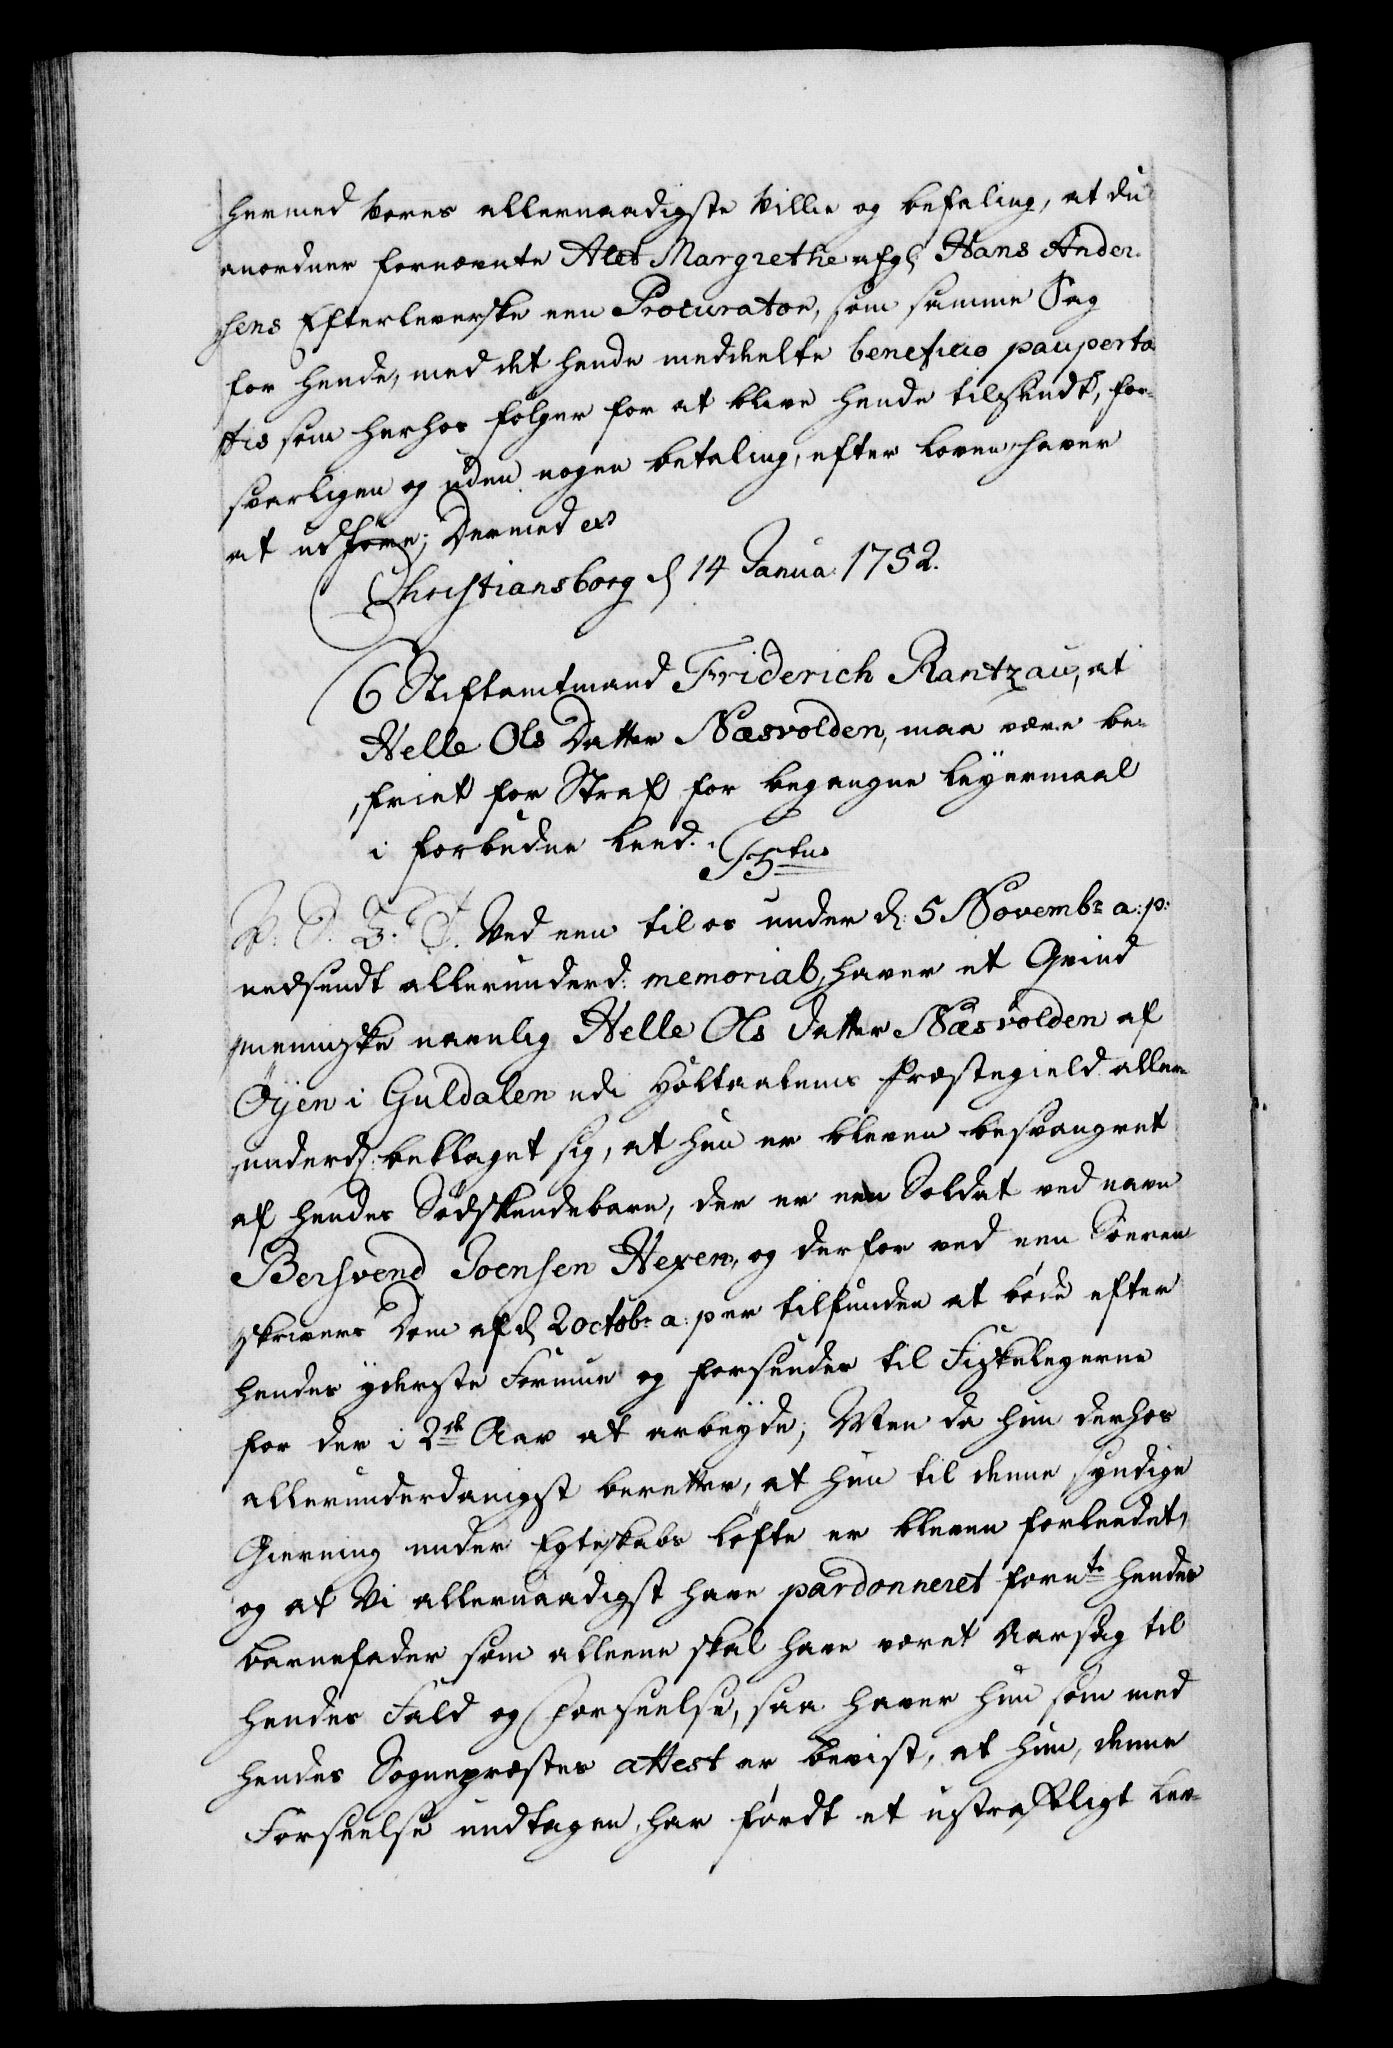 hermed Vores allernaadigste Villie og befaling, at du
anordner fornævnte Alet Margrethe afg: Hans Ander-
sens Efterleverske een Procurator, som samme Sag
for hende, med det hende meddeelte beneficio pauperta-
tis som herhos følger for at blive hende tilstendt, for-
svarligen og uden nogen betaling, efter loven haver
at udføre; Dermed etc
Christiansborg d 14 Janua: 1752.
6 Stiftamtmand Friderich Rantzau, at
Helle Ols Datter Næsvolden, maa være be-
friet for Straf for begangne leyermaal
i forbudne leed.
F. 5tus Ved een til os under d: 5 Novembr a: p:
nedsendt allerunderd: memorial, haver et Qvind
menniske navnlig Helle Ols datter Næsvolden af
Øyen i Guldalen udi Holtaalens Præstegield aller-
underd: beklaget sig, at hun er bleven besvangret
af hendes Sødskendebarn, der er een Soldat ved navn
Bersvend Joensen Hexem, og derfor ved een Soeren-
skrivers Dom af d 2 octobr a: p er tilfunden at bøde efter
hendes yderste Formue og forsendes til Fiskelegerne
for der i 2de Aar at arbeyde; Men da hun derhos
allerunderdanigst beretter, at hun til denne syndige
Gierning under Egteskabs løfte er bleven forleedet,
og at Vi allernaadigst have pardonneret fornte hendes
barnefader som alleene skal have været Aarsag til
hendes Fald og Forseelse, saa haver hun som med
hendes Sognepræstes attest er bevist, at hun, denne
Forseelse undtagen, har ført et ustraffeligt lev-